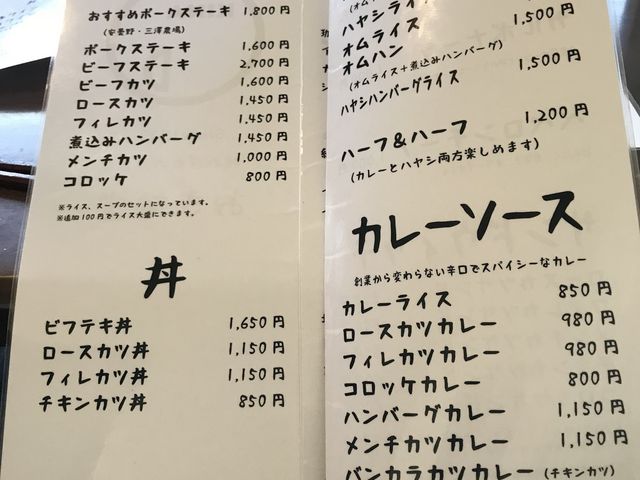 おすすめポークステーキ 1,800円
(安曇野・三澤農場)
ポークステーキ 1,600円
ビーフステーキ 2,700円
ビーフカツ 1,600円
ロースカツ 1,450円
フィレカツ 1,450円
煮込みハンバーグ 1,450円
メンチカツ 1,000円
コロッケ 800円
※ライス、スープのセットになっています。
※追加100円でライス大盛にできます。
丼
ビフテキ丼 1,650円
ロースカツ丼 1,150円
フィレカツ丼 1,150円
チキンカツ丼 850円
ハヤシライ
オムライス 1,500円
オムハン
(オムライス+煮込みハンバーグ)
1,500円
ハヤシハンバーグライス
ハーフ&ハーフ 1,200円
(カレーとハヤシ両方楽しめます)
カレーソース
創業から変わらない辛口でスパイシーなカレー
カレーライス 850円
ロースカツカレー 980円
フィレカツカレー 980円
コロッケカレー 800円
ハンバーグカレー 1,150円
メンチカツカレー 1,150円
バンカラカツカレー (チキンカツ)